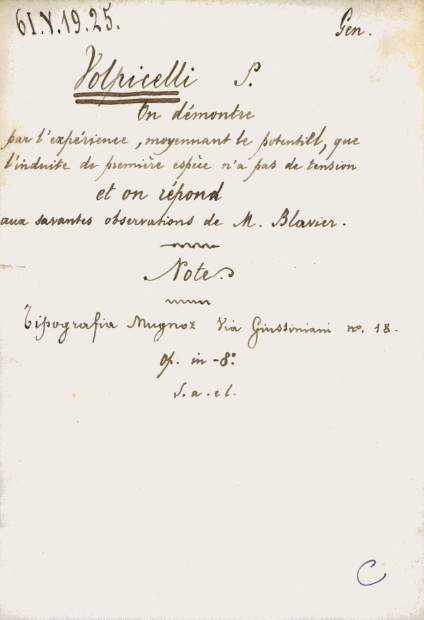 61.V.19.25.
Gen.
Volpicelli P.
On démontre
par l'expérience, moyennant le potentiell, que
l'induite de première espèce n'a pas de tension
et on répond
aux savantes observations de M. Blavier.
Note.
Tipografia Mugnoz Via Giussiniani no. 18.
op. in-8.°
S. a. et l.
C